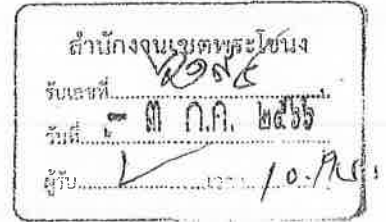 สำนักงานเขตพระโขนง
รับเลขที่
วันที่ - ๓ ก.ค. ๒๕๖๖
ผู้รับ เวลา